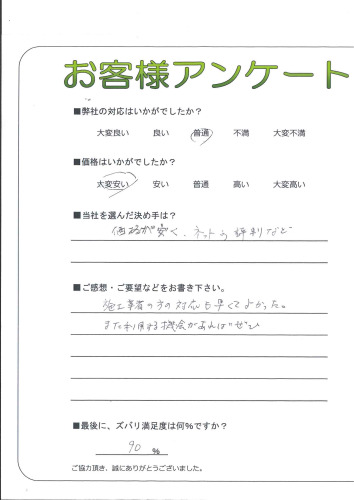 お客様アンケート
■弊社の対応はいかがでしたか?
大変良い 良い 普通 不満 大変不満
■価格はいかがでしたか?
大変安い 安い 普通 高い 大変高い
■当社を選んだ決め手は?
価格が安く、ネットの評判など
■ご感想・ご要望などをお書き下さい。
施工業者の方の対応も早くてよかった。
また利用する機会があればぜひ
■最後に、ズバリ満足度は何%ですか?
90 %
ご協力頂き、誠にありがとうございました。